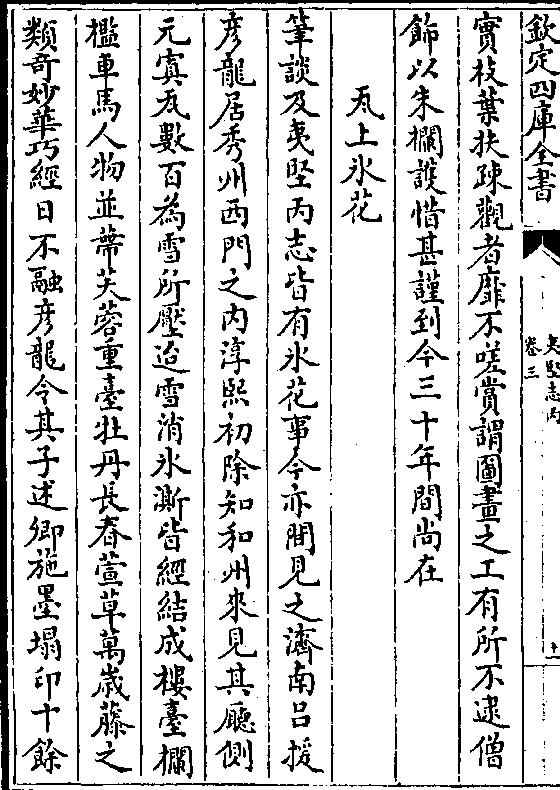 欽定四庫全書
夷堅志丙
卷三
十一
實枝葉扶疎觀者靡不嗟賞謂圖畫之工有所不逮僧
飾以朱欄護惜甚謹到今三十年間尚在
瓦上氷花
筆談及夷堅丙志皆有氷花事今亦間見之濟南吕援
彦龍居秀州西門之内淳熙初除知和州來見其廳側
元寘瓦數百為雪所壓迨雪消氷澌皆經結成樓臺欄
檻車馬人物並蔕芙蓉重臺牡丹長春萱草萬歳藤之
類奇妙華巧經日不融彦龍令其子述卿施墨塌印十餘